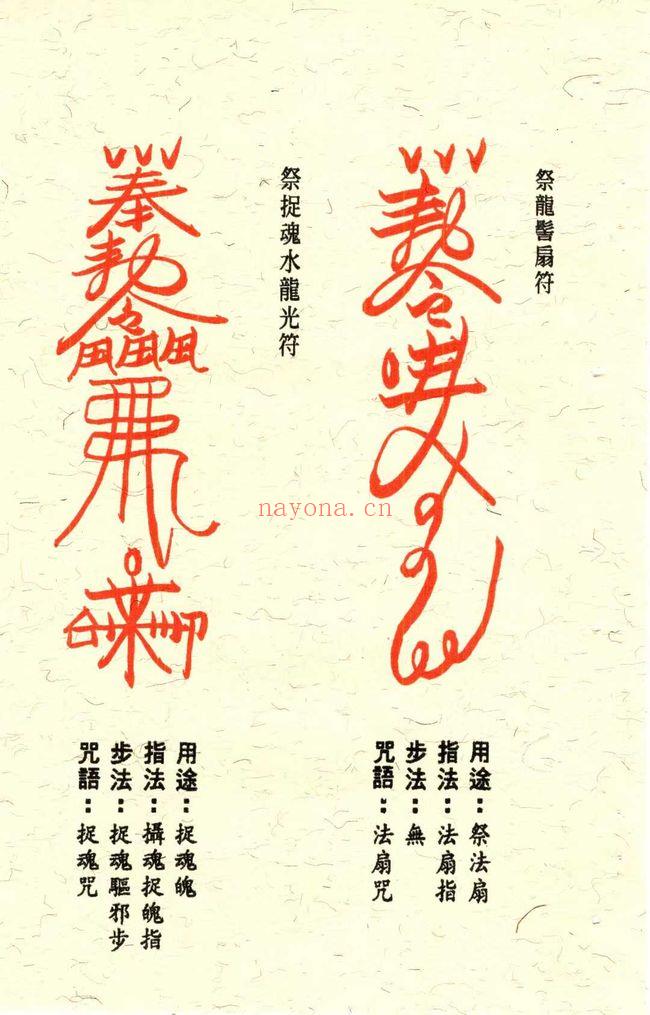 祭龍髻扇符
奉勅令
用途：祭法扇
指法：法扇指
步法：無
咒語：法扇咒
祭捉魂水龍光符
奉勅令
用途：捉魂魄
指法：攝魂捉魄指
步法：捉魂驅邪步
咒語：捉魂咒
nayona.cn